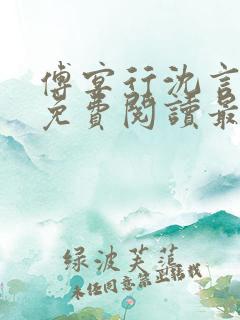 傅宴行沈言
免費閱讀最
绿波芙蕖
未经同意禁止转载